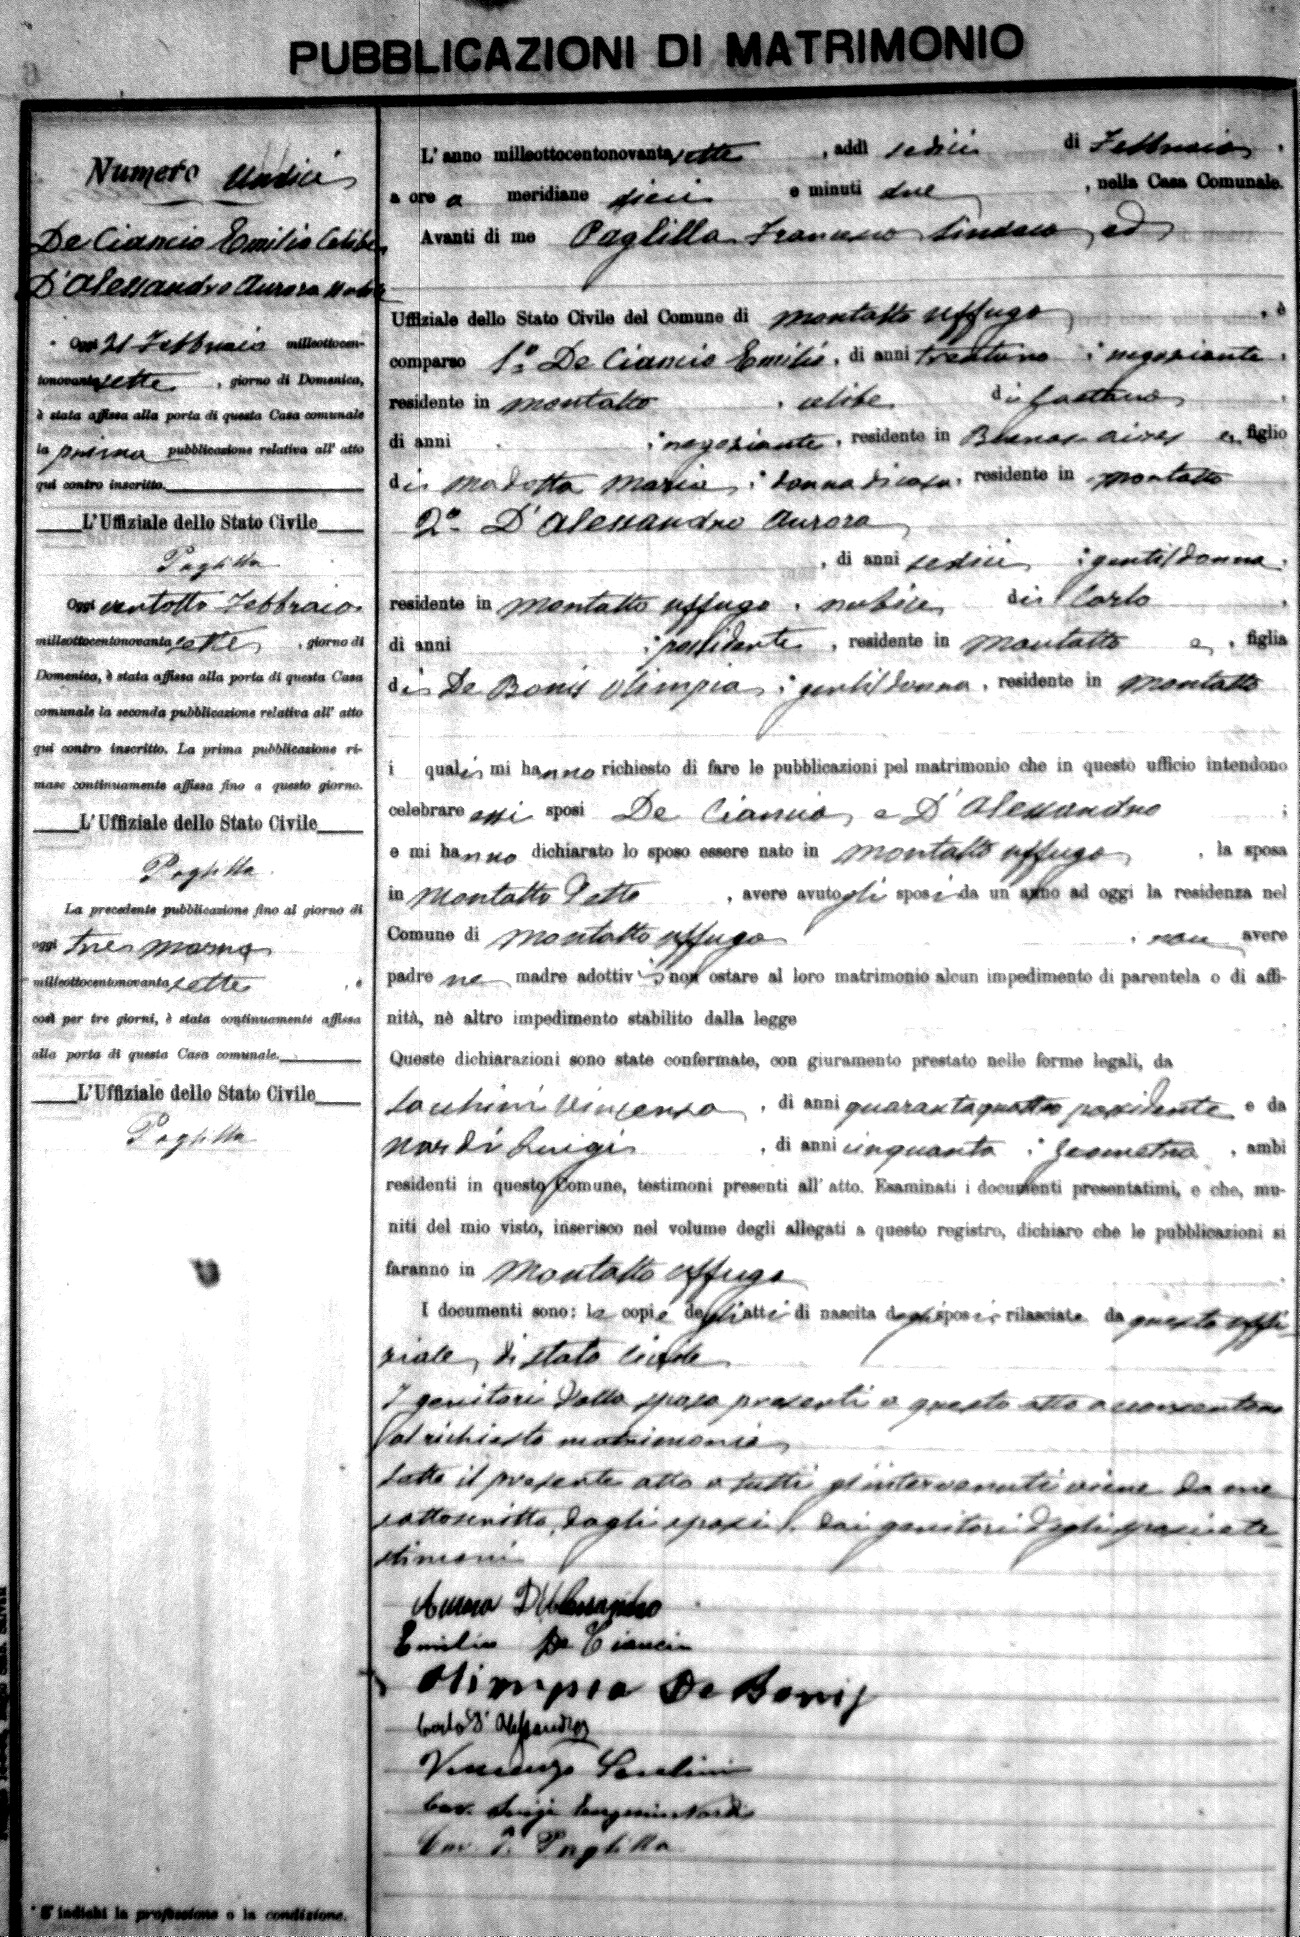 PUBBLICAZIONI DI MATRIMONIO
Numero Undici
De Ciancio Emilio Celibe
D'Alessandro Aurora Nubile
Oggi 21 Febbraio milleottocen-
tonovantasette, giorno di Domenica,
è stata affissa alla porta di questa Casa comunale
la prima pubblicazione relativa all' atto
qui contro inscritto.
L'Uffiziale dello Stato Civile
Paglilla
Oggi ventotto Febbraio
milleottocentonovantasette, giorno di
Domenica, è stata affissa alla porta di questa Casa
comunale la seconda pubblicazione relativa all' atto
qui contro inscritto. La prima pubblicazione ri-
mase continuamente affissa fino a questo giorno.
L'Uffiziale dello Stato Civile
Paglilla
La precedente pubblicazione fino al giorno di
oggi tre marzo
milleottocentonovantasette, e
così per tre giorni, è stata continuamente affissa
alla porta di questa Casa comunale.
L'Uffiziale dello Stato Civile
Paglilla
* S' indichi la professione o la condizione.
L' anno milleottocentonovantasette, addì sedici di Febbraio,
a ore a meridiane dieci e minuti due, nella Casa Comunale.
Avanti di me Paglilla Francesco Sindaco ed
Uffiziale dello Stato Civile del Comune di Montalto Uffugo, è
comparso 1º De Ciancio Emilio, di anni trentuno, negoziante,
residente in Montalto, celibe di Gaetano,
di anni, negoziante, residente in Buenos Aires e, figlio
di Madotta Maria, donna di casa, residente in Montalto
2º D'Alessandro Aurora
, di anni sedici, gentildonna,
residente in Montalto Uffugo, nubile, di Carlo,
di anni, possidente, residente in Montalto e, figlia
di De Bonis Olimpia, gentildonna, residente in Montalto
i quali mi hanno richiesto di fare le pubblicazioni pel matrimonio che in questo ufficio intendono
celebrare essi sposi De Ciancio e D'Alessandro;
e mi hanno dichiarato lo sposo essere nato in Montalto Uffugo, la sposa
in Montalto detto, avere avuto gli sposi da un anno ad oggi la residenza nel
Comune di Montalto Uffugo, non avere
padre ne madre adottivi; non ostare al loro matrimonio alcun impedimento di parentela o di affi-
nità, nè altro impedimento stabilito dalla legge
Queste dichiarazioni sono state confermate, con giuramento prestato nelle forme legali, da
Vincenzo, di anni quarantaquattro possidente e da
Nardi Luigi, di anni cinquanta, geometra, ambi
residenti in questo Comune, testimoni presenti all' atto. Esaminati i documenti presentatimi, e che, mu-
niti del mio visto, inserisco nel volume degli allegati a questo registro, dichiaro che le pubblicazioni si
faranno in Montalto Uffugo
I documenti sono: le copie degli atti di nascita degli sposi rilasciate da questo uffi-
ziale di stato civile
I genitori della sposa presenti a questo atto acconsentono
al richiesto matrimonio
Letto il presente atto a tutti gl'intervenuti viene da me
sottoscritto, dagli sposi, dai genitori degli sposi e te-
stimoni
Aurora D'Alessandro
Emilio De Ciancio
Olimpia De Bonis
Carlo D'Alessandro
Vincenzo
Cav. Luigi Eugenio Nardi
Cav. F. Paglilla